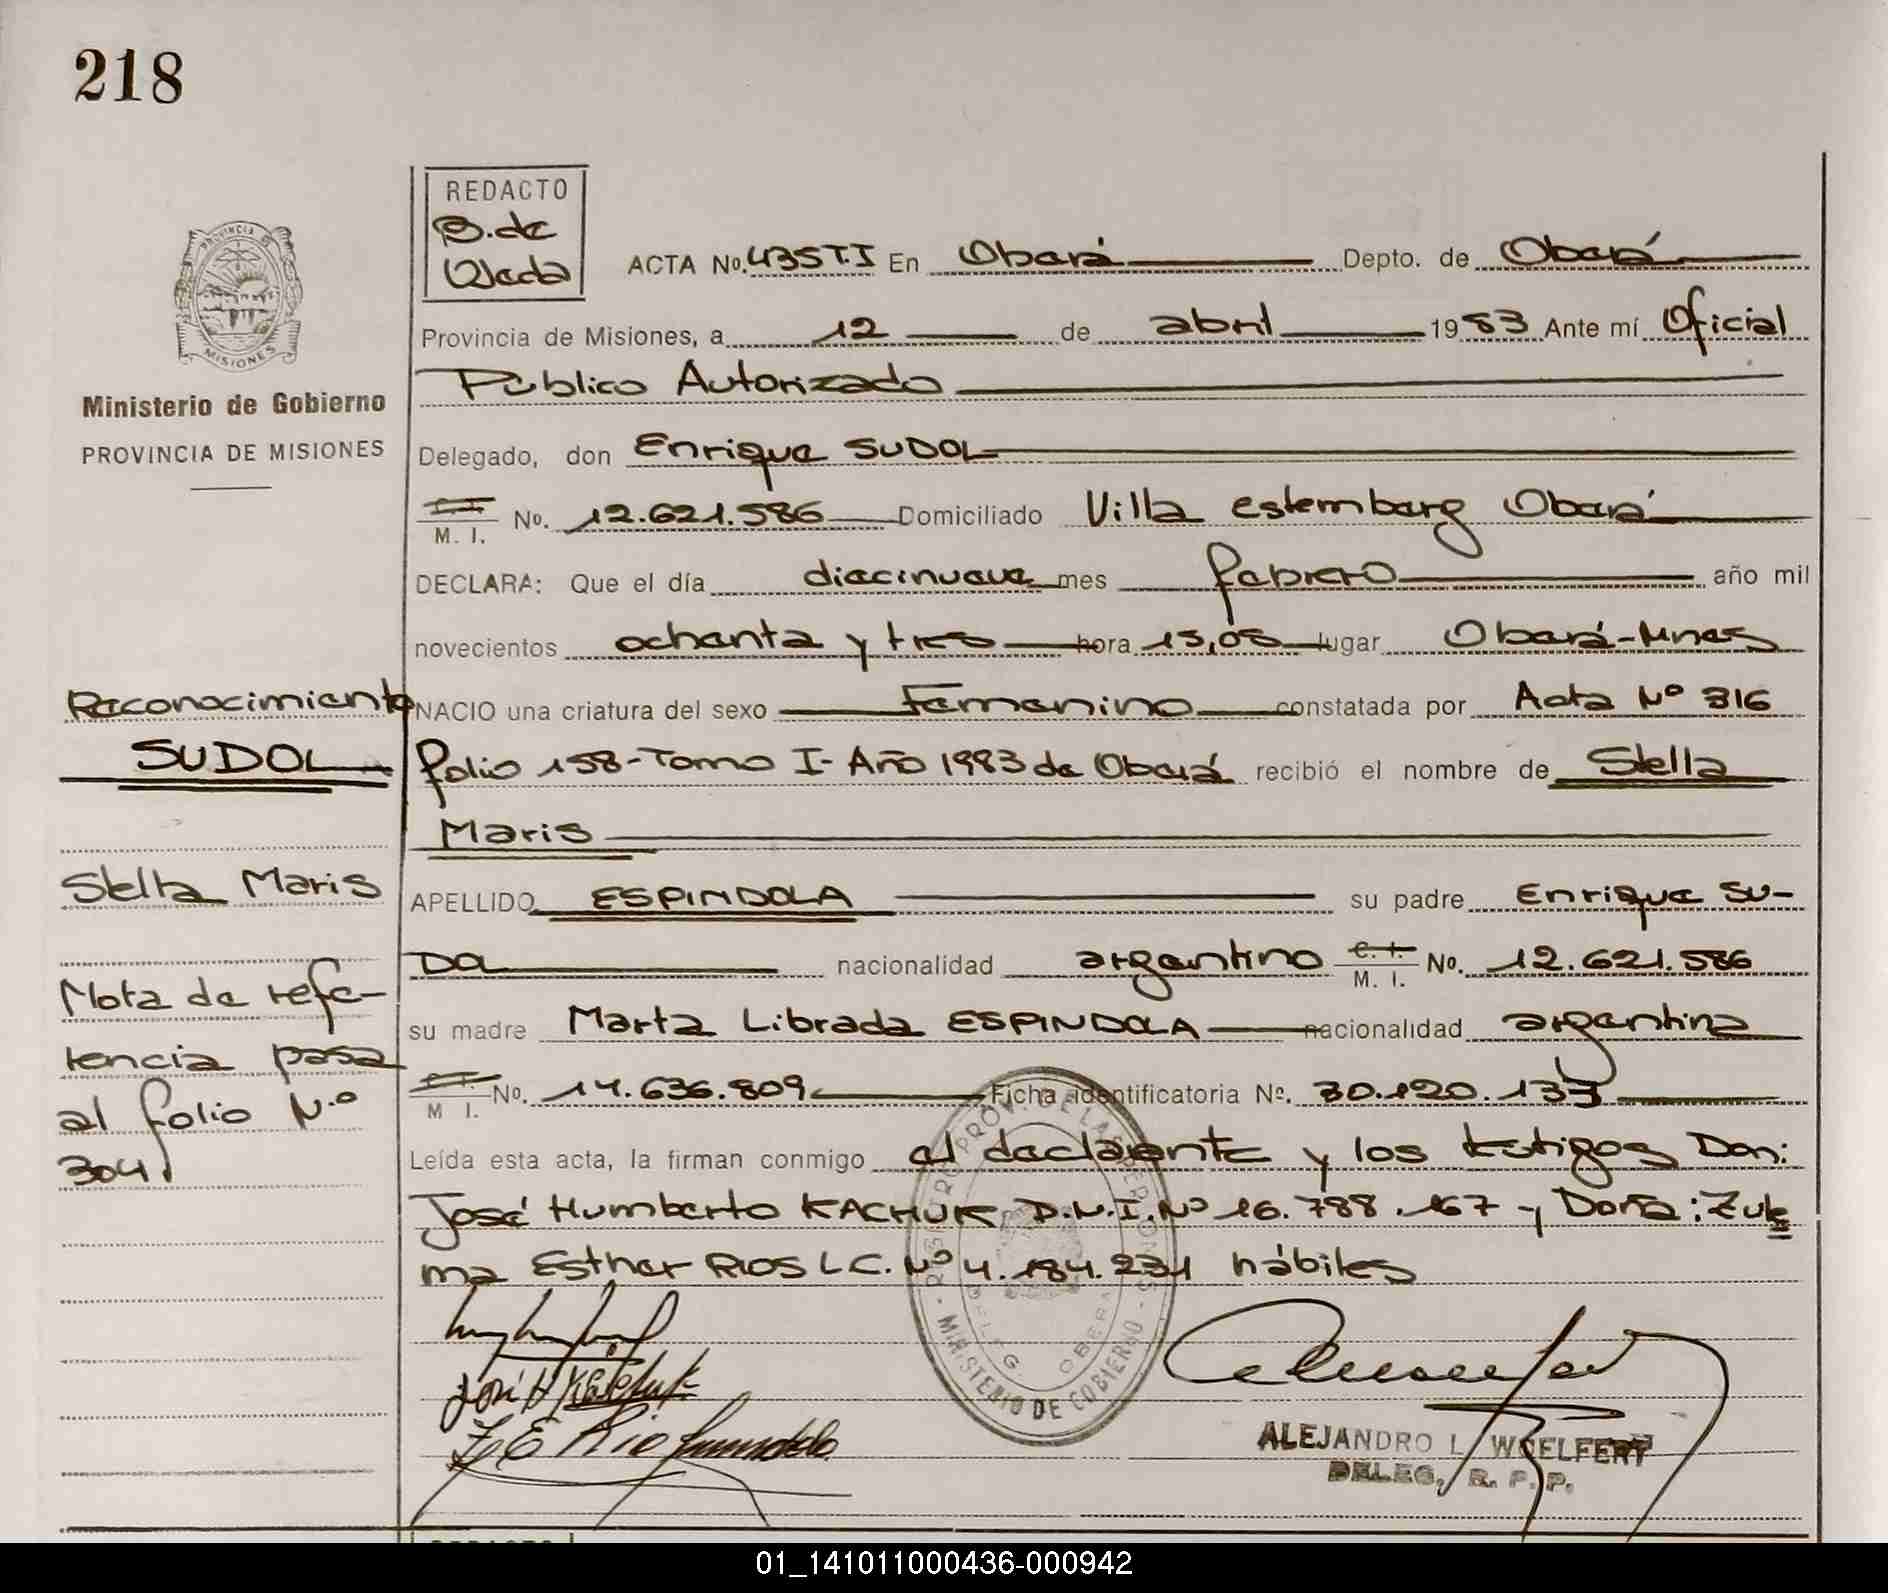 218
PROVINCIA DE
MISIONES
Ministerio de Gobierno
PROVINCIA DE MISIONES
Reconocimiento
SUDOL
Stella Maris
Nota de refe-
rencia pasa
al folio N.º
304
REDACTO
B. de
ACTA No. 435 T.I En Oberá Depto. de Oberá
Provincia de Misiones, a 12 de abril 1983 Ante mí Oficial
Público Autorizado
Delegado, don Enrique SUDOL
C. I.
M. I. No. 12.621.586 Domiciliado Villa estemberg Oberá
DECLARA: Que el día diecinueve mes febrero año mil
novecientos ochenta y tres hora 15,05 lugar Oberá-Mnes
NACIO una criatura del sexo Femenino constatada por Acta Nº 316
folio 158-Tomo I- Año 1983 de Oberá recibió el nombre de Stella
Maris
APELLIDO ESPINDOLA su padre Enrique SU-
DOL nacionalidad argentino C. I. M. I. No. 12.621.586
su madre Marta Librada ESPINDOLA nacionalidad argentina
C. I. M I. No. 14.636.809 Ficha identificatoria Nº. 30.120.133
Leída esta acta, la firman conmigo el declarante y los testigos Don:
José Humberto KACHUK D.N.I. Nº 16.788.167 - y Doña: Zule
ma Esther RIOS L C. Nº 4.184.231 hábiles
REGISTRO PROV. DE LAS PERSONAS - MINISTERIO DE GOBIERNO -
DELEG. OBERA
José H Kachuk
Z E Rio
ALEJANDRO L WOELFERT
DELEG. R. P. P.
01_141011000436-000942